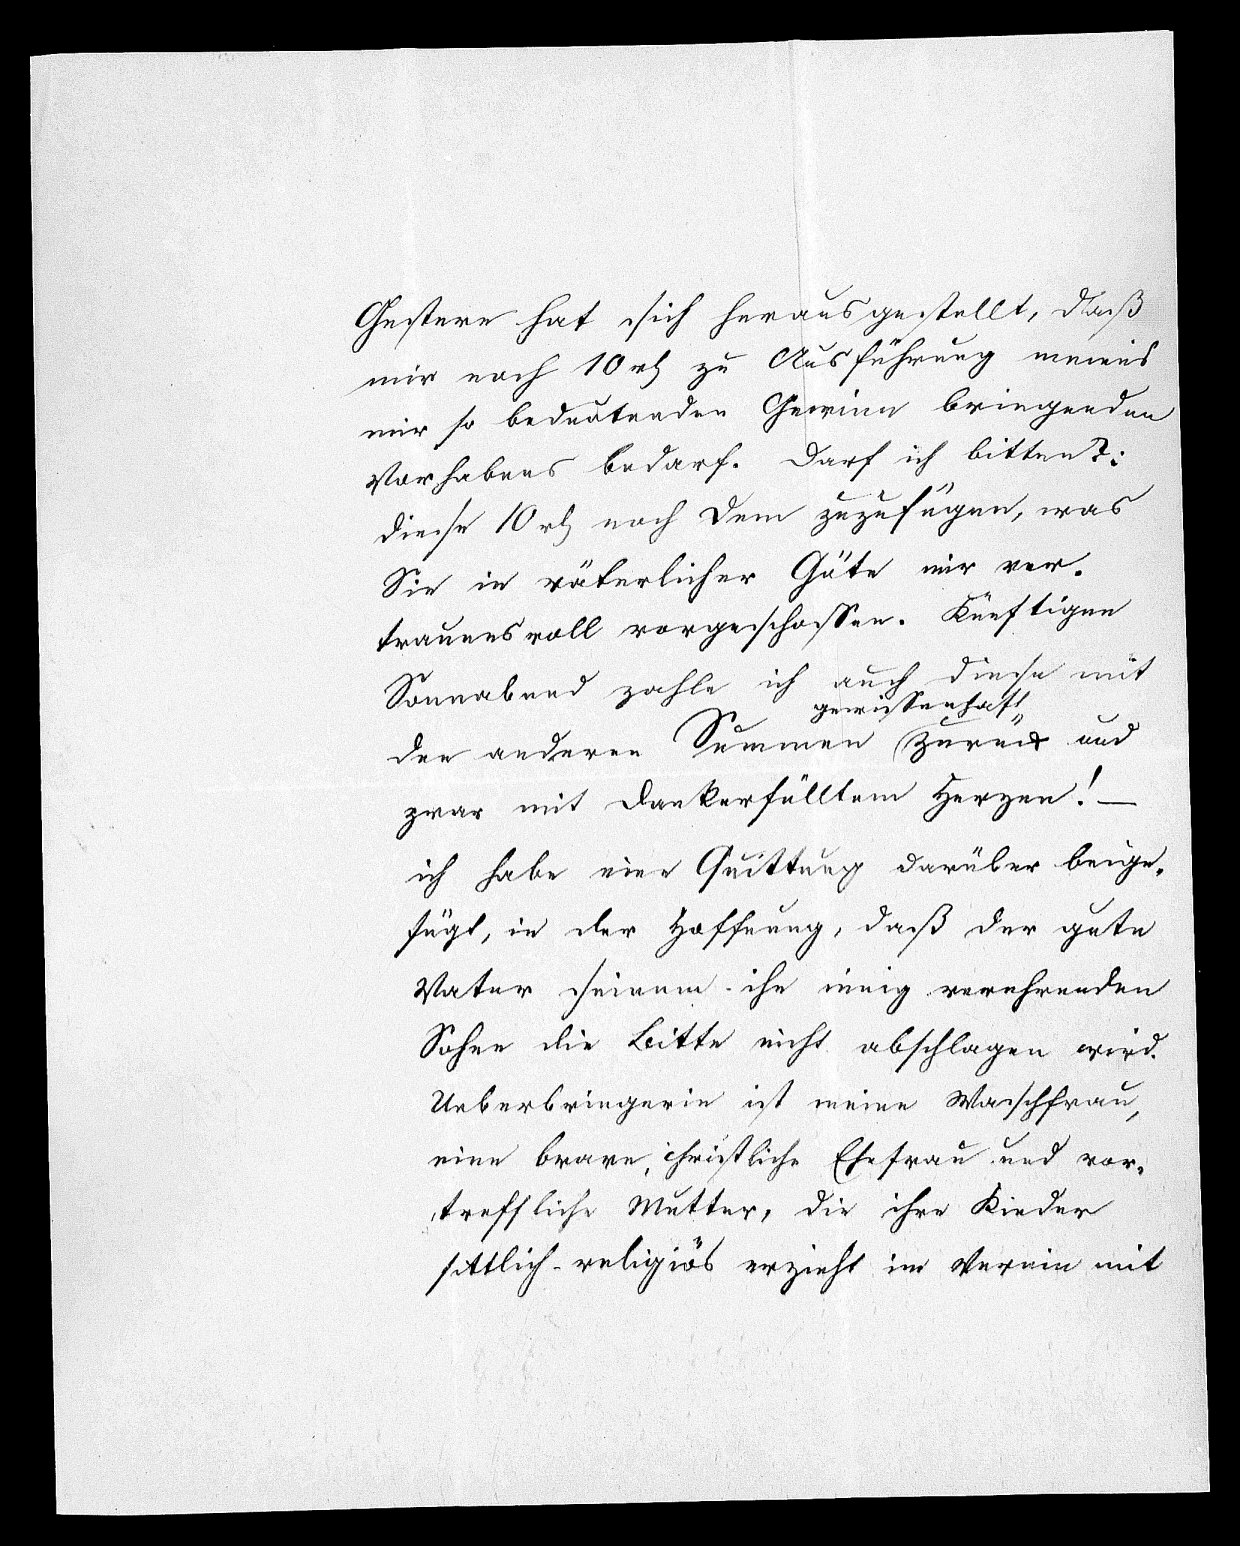 Gestern hat sich herausgestellt, daß
mir noch 10 rh zu Ausführung meines
mir so bedeutenden Gewinn bringenden
Vorhabens bedarf. Darf ich bitten?:
diese 10 rh noch dem zuzufügen, was
Sie in väterlicher Güte mir ver-
trauensvoll vorgeschossen. Künftigen
Sonnabend zahle ich auch diese mit
gewissenhaft
den anderen Summen zurück und
zwar mit dankerfülltem Herzen! —
ich habe eine Quittung darüber beige-
fügt, in der Hoffnung, daß der gute
Vater seinem - ihn innig verehrenden
Sohne die Bitte nicht abschlagen wird.
Ueberbringerin ist meine Waschfrau,
eine brave, christliche Ehefrau und vor-
treffliche Mutter, die ihre Kinder
sittlich-religiös erzieht im Verein mit